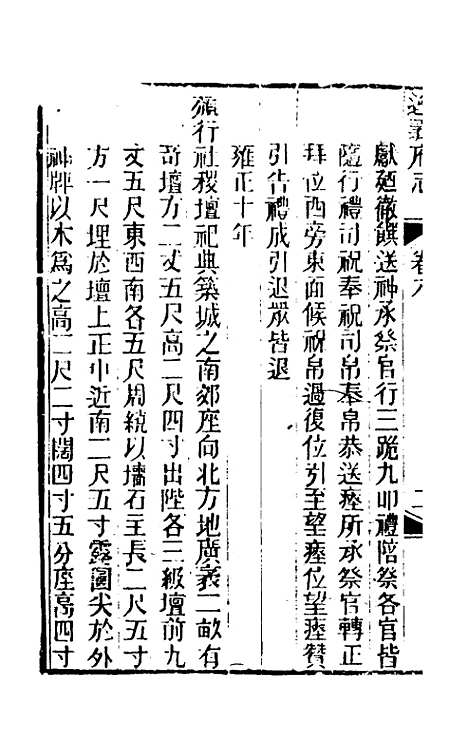 遵義府志　卷八　二
獻廵徹饌送神承祭官行三跪九叩禮陪祭各官皆
隨行禮司祝奉祝司帛奉帛恭送瘞所承祭官轉正
拜位西旁東面候祝帛過復位引至望瘞位望瘞贊
引告禮成引退眾皆退
雍正十年
頒行社稷壇祀典築城之南郊座向北方地廣袤二畝有
奇壇方二丈五尺高二尺四寸出陛各三級壇前九
丈五尺東西南各五尺周繞以墻石主長二尺五寸
方一尺埋於壇上正中近南二尺五寸露圓尖於外
神牌以木為之高二尺二寸闊四寸五分座高四寸